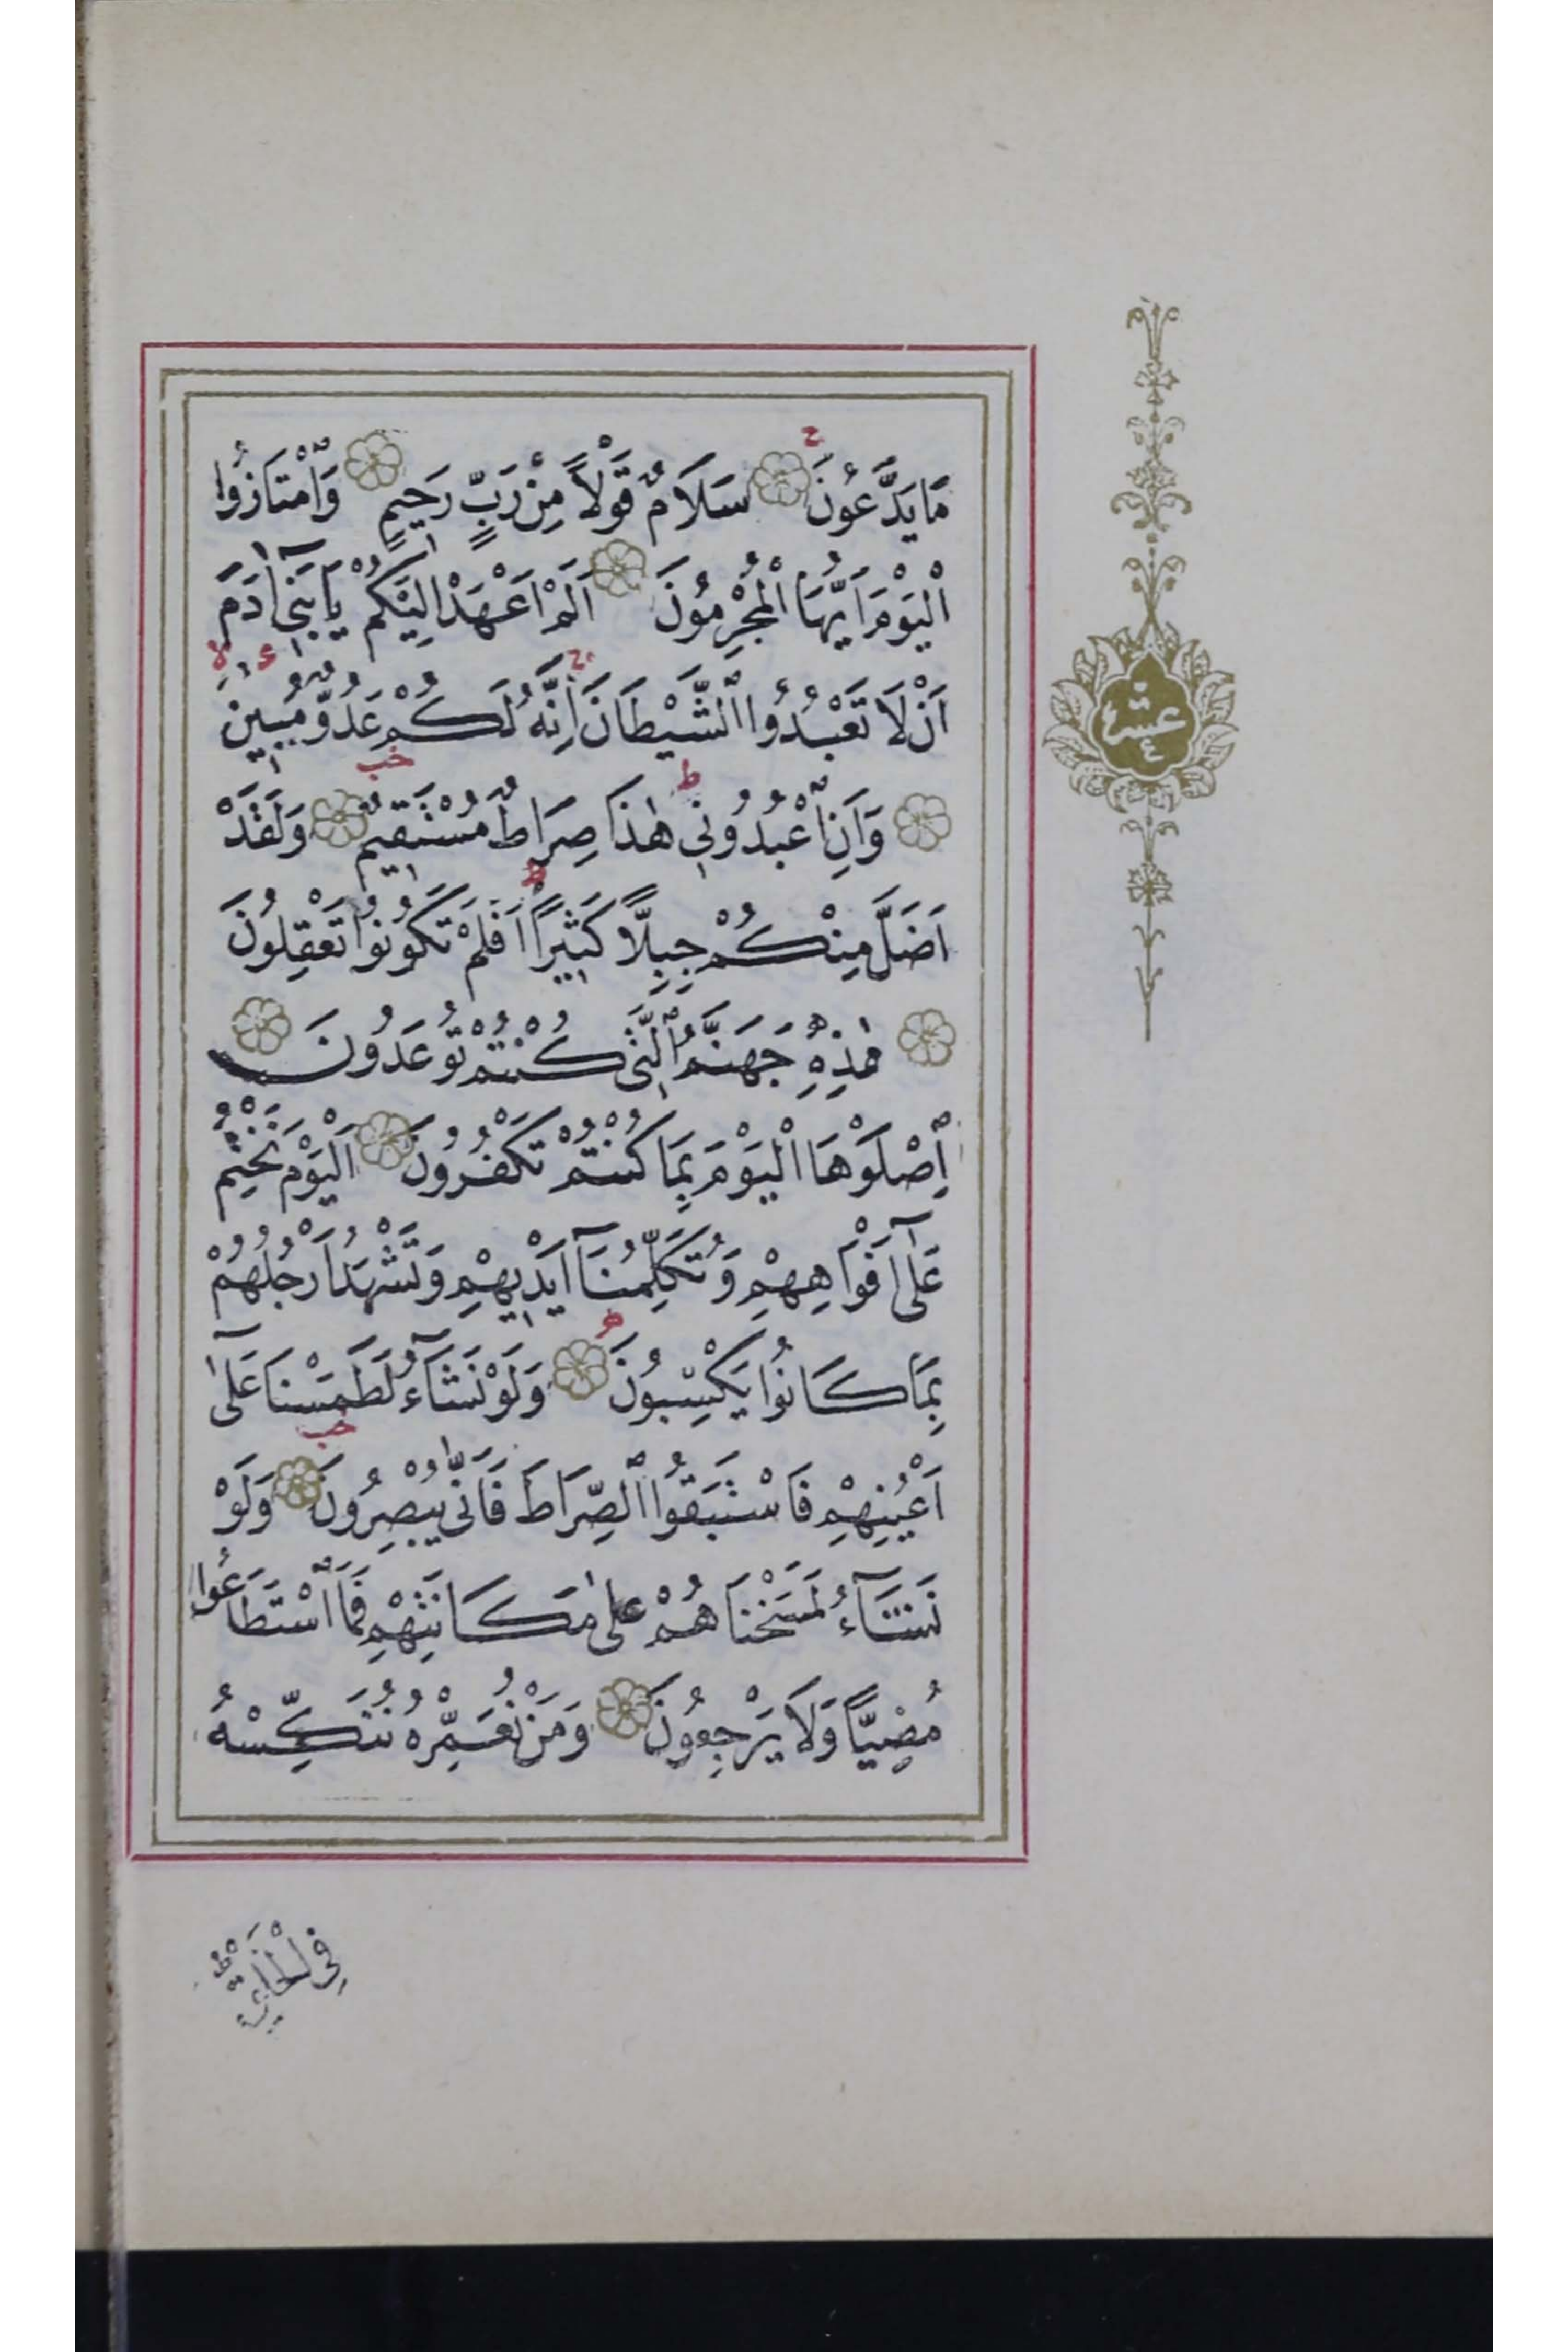 مَا يَدَّعُونَ سَلَامٌ قَوْلًا مِنْ رَبٍّ رَحِيمٍ وَٱمْتَازُوا
ٱلْيَوْمَ اَيُّهَا ٱلْمُجْرِمُونَ اَلَمْ اَعْهَدْ اِلَيْكُمْ يَا بَنِٓي اٰدَمَ
اَنْ لَا تَعْبُدُوا ٱلشَّيْطَانَ اِنَّهُ لَكُمْ عَدُوٌّ مُبِينٌ
وَاَنِ ٱعْبُدُونِي هٰذَا صِرَاطٌ مُسْتَقِيمٌ وَلَقَدْ
اَضَلَّ مِنْكُمْ جِبِلًّا كَثِيرًا اَفَلَمْ تَكُونُوا تَعْقِلُونَ
هٰذِهِ جَهَنَّمُ ٱلَّتِي كُنْتُمْ تُوعَدُونَ
اِصْلَوْهَا ٱلْيَوْمَ بِمَا كُنْتُمْ تَكْفُرُونَ اَلْيَوْمَ نَخْتِمُ
عَلٰٓى اَفْوَاهِهِمْ وَتُكَلِّمُنَٓا اَيْدِيهِمْ وَتَشْهَدُ اَرْجُلُهُمْ
بِمَا كَانُوا يَكْسِبُونَ وَلَوْ نَشَٓاءُ لَطَمَسْنَا عَلٰٓى
اَعْيُنِهِمْ فَاسْتَبَقُوا ٱلصِّرَاطَ فَاَنّٰى يُبْصِرُونَ وَلَوْ
نَشَٓاءُ لَمَسَخْنَاهُمْ عَلٰى مَكَانَتِهِمْ فَمَا ٱسْتَطَاعُوا
مُضِيًّا وَلَا يَرْجِعُونَ وَمَنْ نُعَمِّرْهُ نُنَكِّسْهُ
عشر
٤
فِي ٱلْخَلْقِ